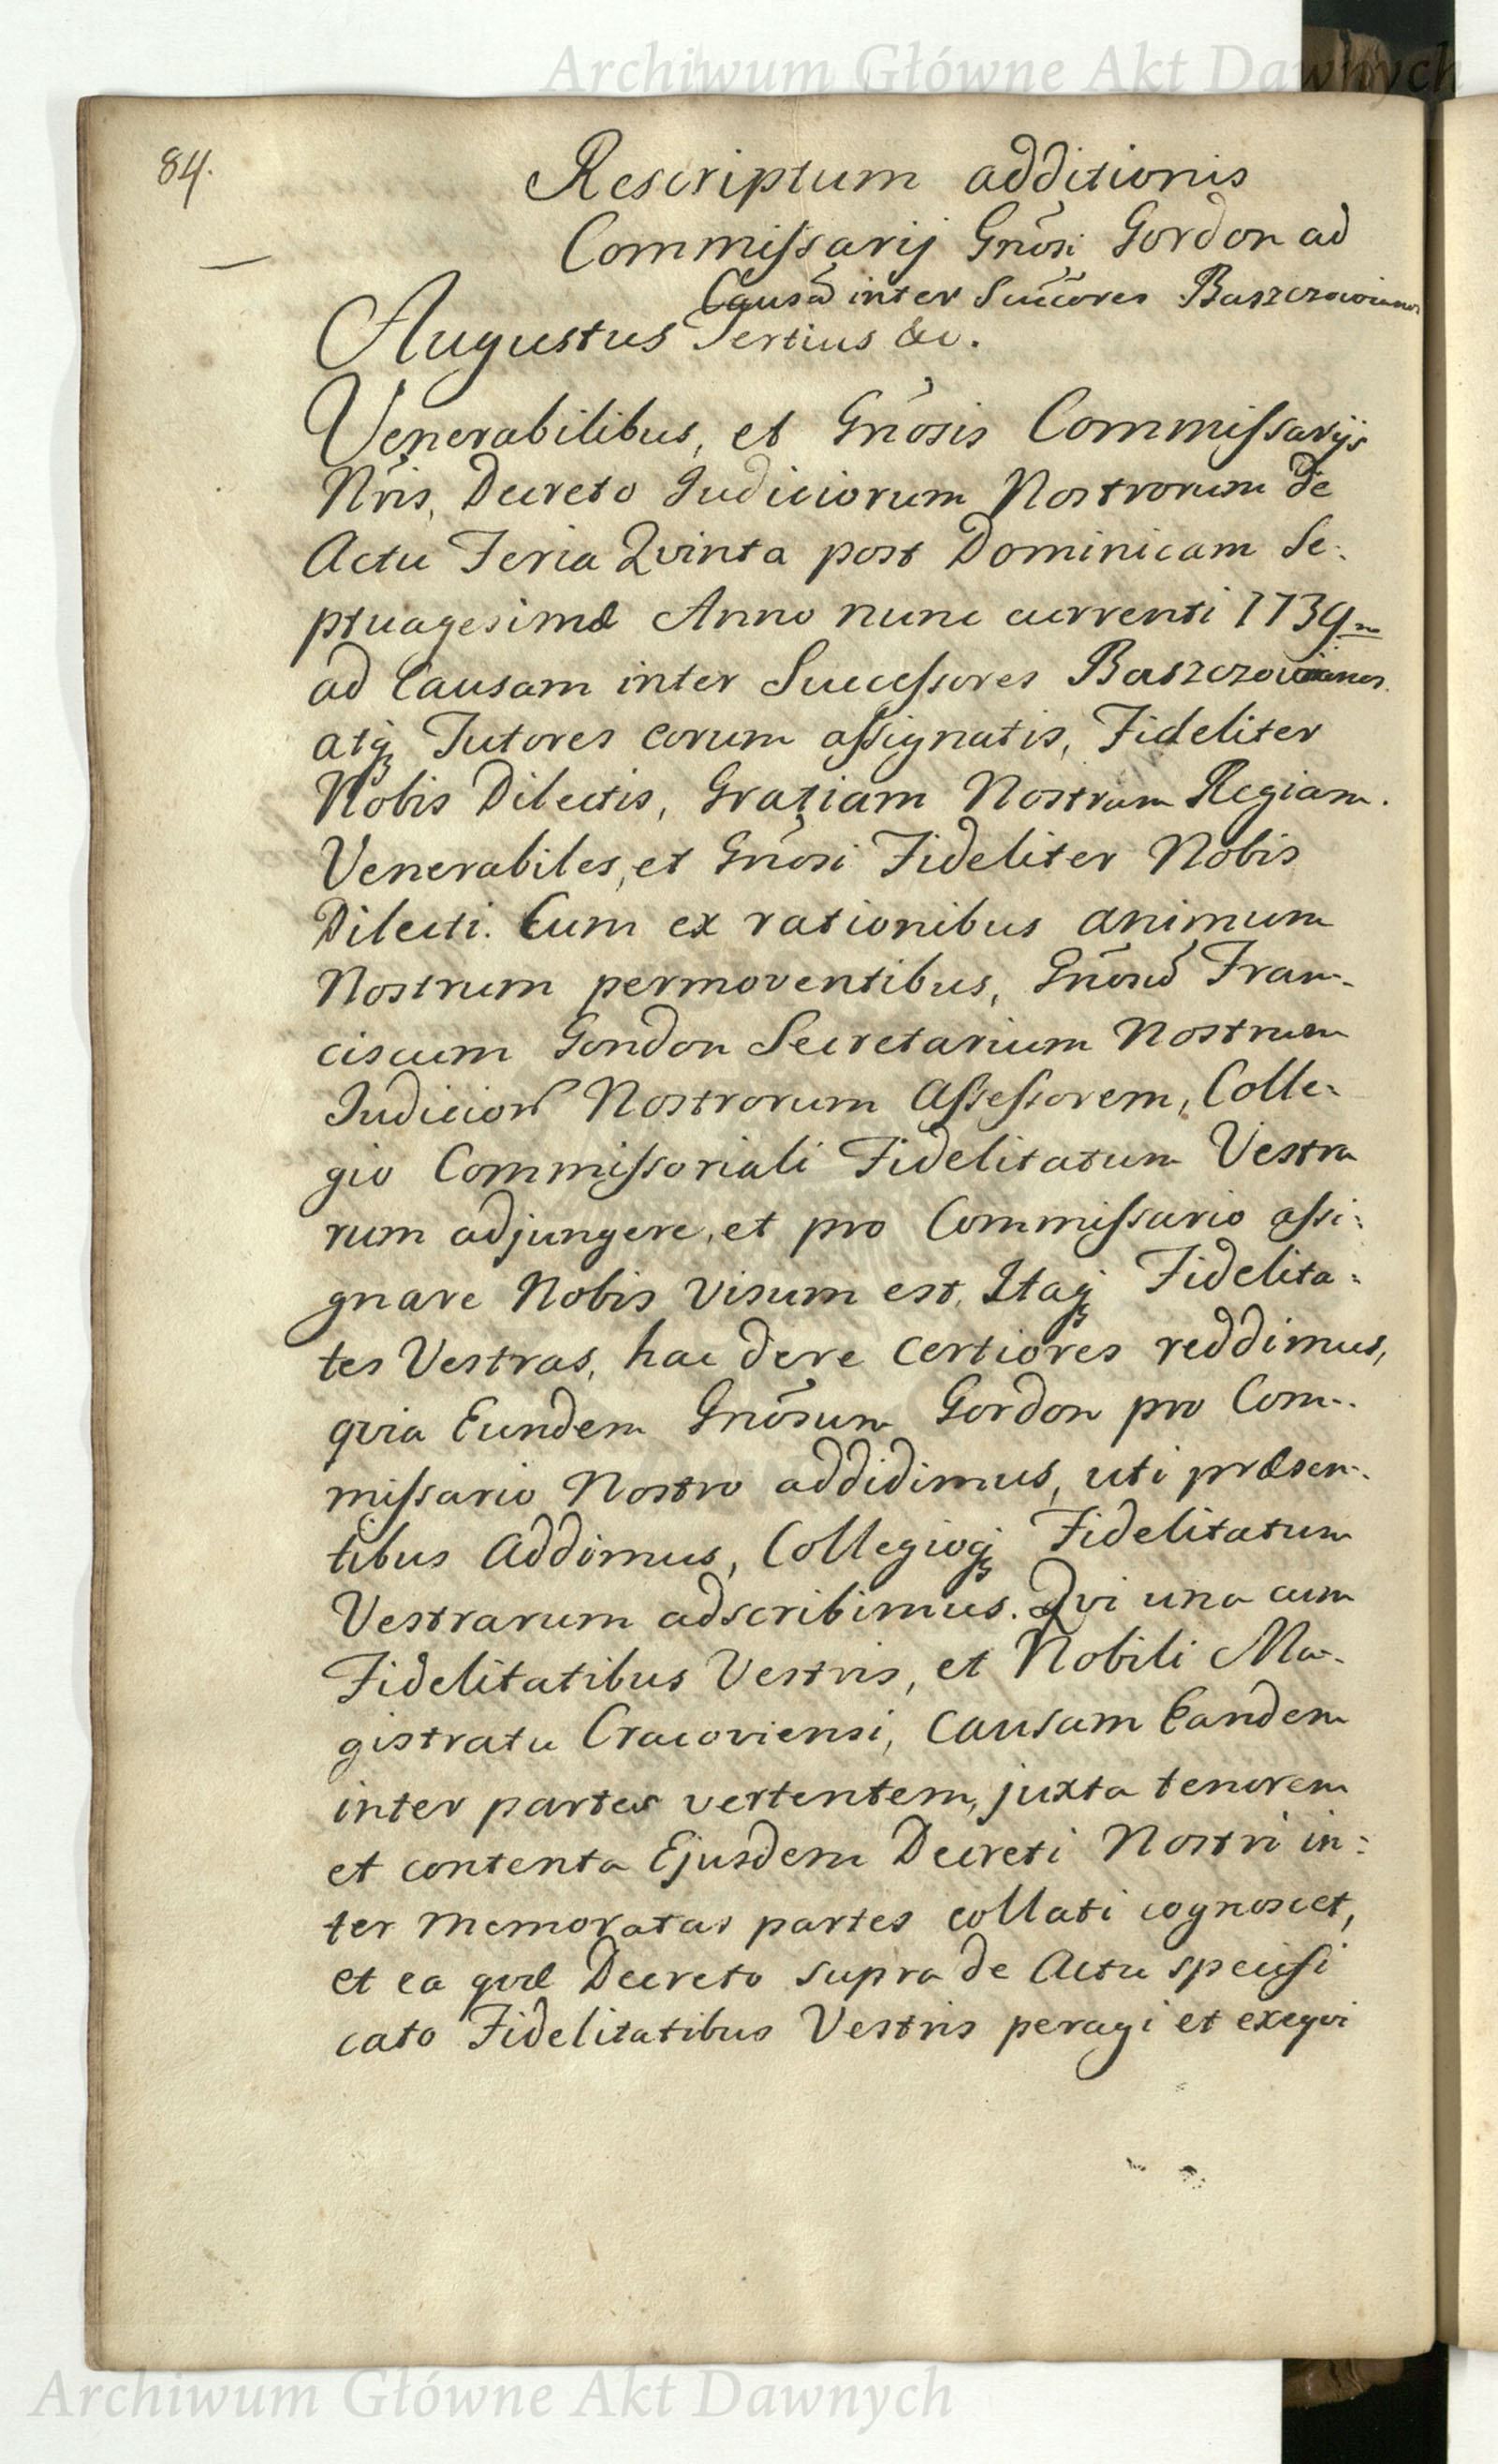 Archiwum Główne Akt Dawnych
84.
Rescriptum additionis
Commissarij Gnosi Gordon ad
Causã inter Succores Baszczowianos
Augustus Tertius &c.
Venerabilibus, et Gnosis Commissarijs
Nris, Decreto Judiciorum Nostrorum de
Actu Feria Qvinta post Dominicam Se:
ptuagesimæ Anno nunc currenti 1739no
ad Causam inter Successores Baszczowianos
atq Tutores eorum assignatis, Fideliter
Nobis Dilectis, Gratiam Nostram Regiam.
Venerabiles, et Gnosi Fideliter Nobis
Dilecti. Cum ex rationibus animum
Nostrum permoventibus, Gnosũ Fran-
ciscum Gordon Secretarium Nostrum
Judicior Nostrorum Assessorem, Colle:
gio Commissoriali Fidelitatum Vestra
rum adjungere, et pro Commissario assi:
gnare Nobis visum est. Itaq Fidelita:
tes Vestras, hac dere certiores reddimus,
qvia Eundem Gnosum Gordon pro Com-
missario Nostro addidimus, uti præsen-
tibus Addimus, Collegioq Fidelitatum
Vestrarum adscribimus. Qvi una cum
Fidelitatibus Vestris, et Nobili Ma-
gistratu Cracoviensi, causam Eandem
inter partes vertentem, juxta tenorem
et contenta Ejusdem Decreti Nostri in:
ter memoratas partes collati cognoscet,
et ea qvæ Decreto supra de Actu specifi
cato Fidelitatibus Vestris peragi et exeqvi
Archiwum Główne Akt Dawnych